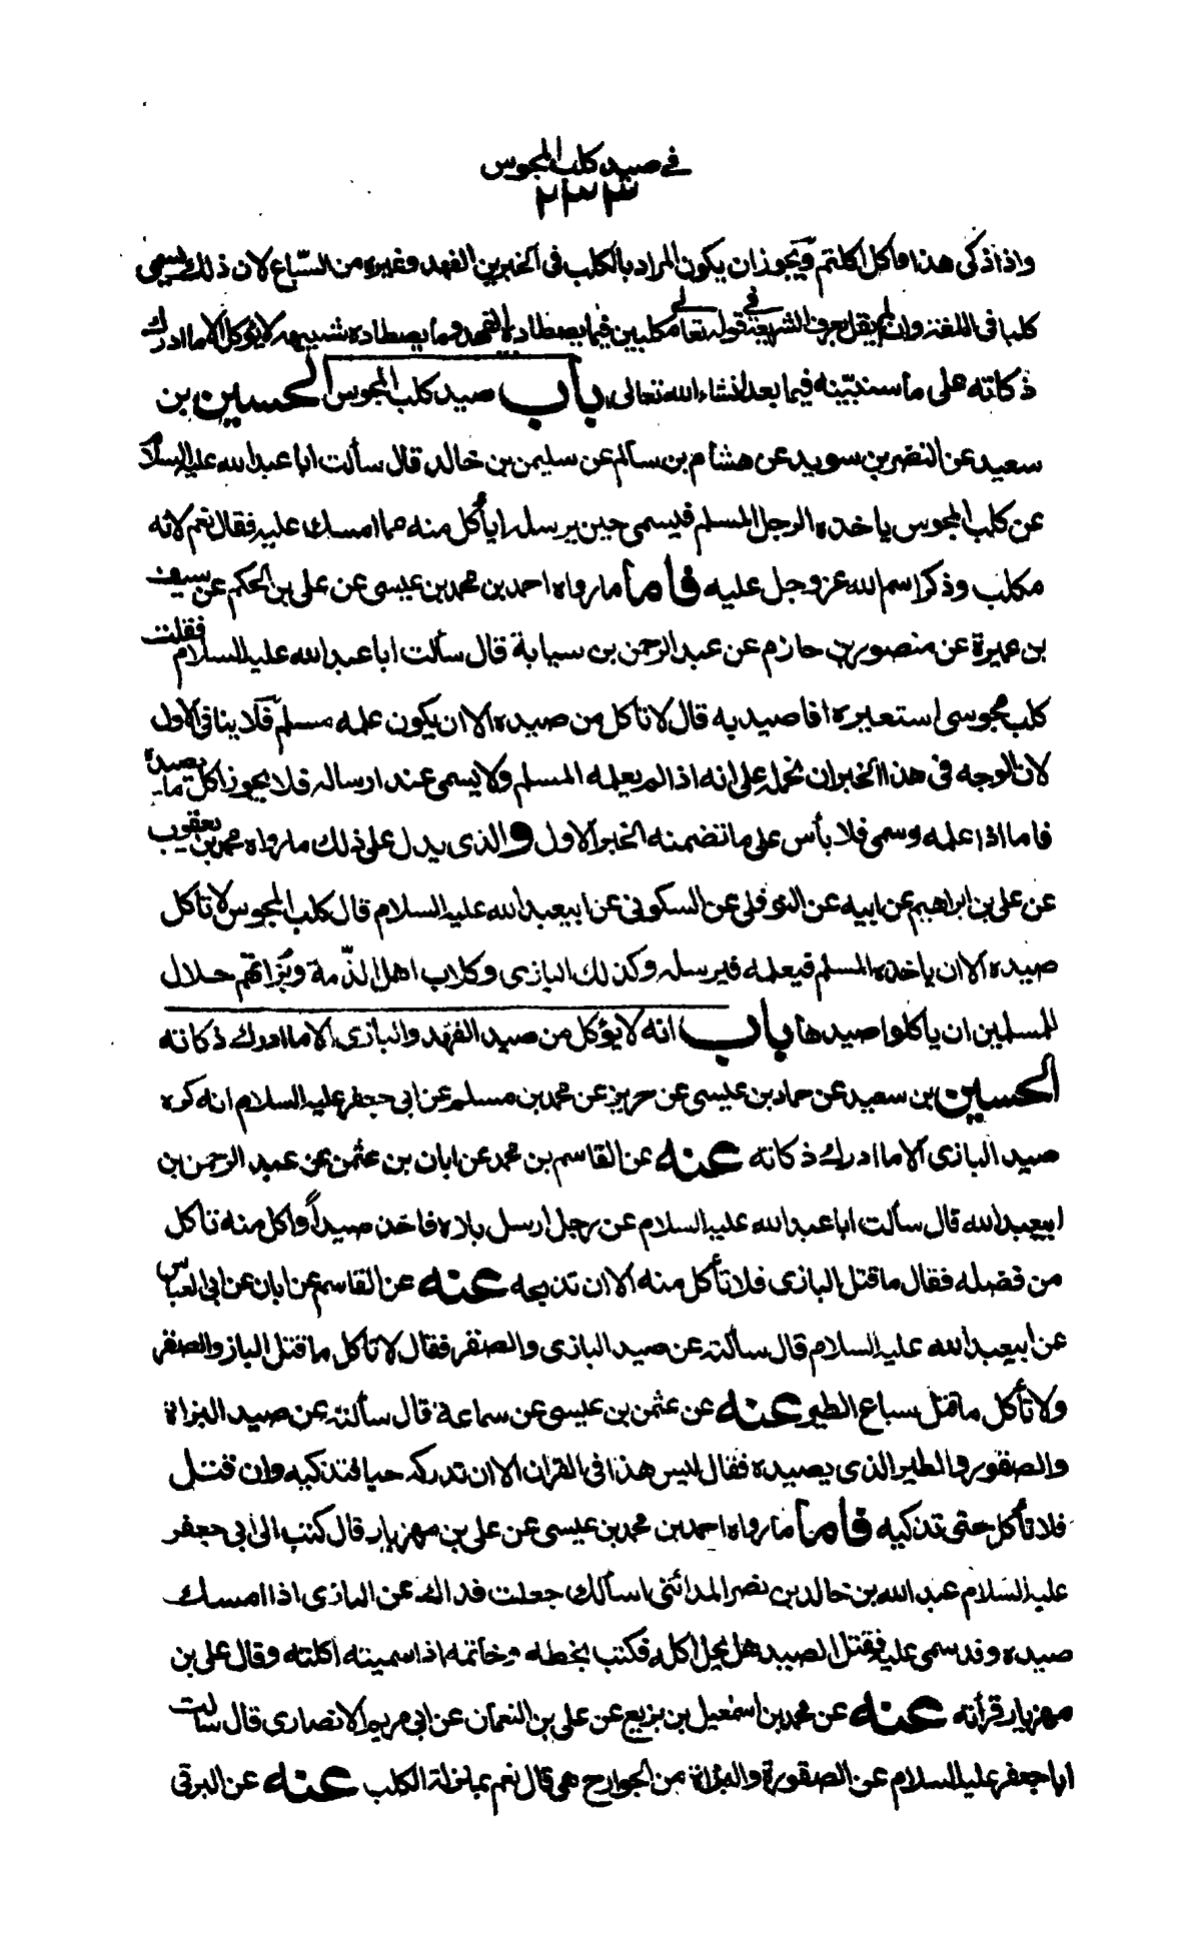 في صيد كلب المجوس
٢٣٣
واذا ذكى هذا ماكل اكلتم ويجوز ان يكون المراد بالكلب في الخبرين الفهد وغيره من السباع لان ذلك يسمى
كلبا في اللغة وان لم يقل بعرف الشريعة في قوله تعالى مكلبين فيما يصطاده الفهد وما يصطاده شبيهه لا يؤكل الا ما ادرك
ذكاته على ما سنبيّنه فيما بعد انشاء الله تعالى باب صيد كلب المجوس الحسين بن
سعيد عن النضر بن سويد عن هشام بن سالم عن سليمن بن خالد قال سألت ابا عبد الله عليه السلام
عن كلب المجوس ياخذه الرجل المسلم فيسمى حين يرسله ايأكل منه مما امسك عليه فقال نعم لانه
مكلب وذكر اسم الله عز وجل عليه فاما ما رواه احمد بن محمد بن عيسى عن على بن الحكم عن سيف
بن عميرة عن منصور بن حازم عن عبد الرحمن بن سيابة قال سألت ابا عبد الله عليه السلام فقلت
كلب مجوسى استعيره افاصيد به قال لا تاكل من صيده الا ان يكون علمه مسلم فلا ينافى الاول
لان الوجه في هذا الخبر ان نحمله على انه اذا لم يعلمه المسلم ولا يسمى عند ارساله فلا يجوز اكل ما يصيده
فاما اذا علمه وسمى فلا بأس على ما تضمنه الخبر الاول والذى يدل على ذلك ما رواه محمد بن يعقوب
عن على بن ابراهيم عن ابيه عن النوفلى عن السكونى عن ابيعبد الله عليه السلام قال كلب المجوس لا تاكل
صيده الا ان ياخذه المسلم فيعلمه فيرسله وكذلك البازى وكلاب اهل الذّمة وبزاتهم حلال
للمسلمين ان ياكلوا صيدها باب انه لا يؤكل من صيد الفهد والبازى الا ما ادرك ذكاته
الحسين بن سعيد عن حماد بن عيسى عن حريز عن محمد بن مسلم عن ابى جعفر عليه السلام انه كره
صيد البازى الا ما ادرك ذكاته عنه عن القاسم بن محمد عن ابان بن عثمن عن عبد الرحمن بن
ابيعبد الله قال سألت ابا عبد الله عليه السلام عن رجل ارسل بازه فاخذ صيداً واكل منه تاكل
من فضله فقال ما قتل البازى فلا تأكل منه الا ان تذبحه عنه عن القاسم عن ابان عن ابى العباس
عن ابيعبد الله عليه السلام قال سألته عن صيد البازى والصقر فقال لا تأكل ما قتل الباز والصقر
ولا تأكل ما قتل سباع الطير عنه عن عثمن بن عيسى عن سماعة قال سألته عن صيد البزاة
والصقور والطير الذى يصيده فقال ليس هذا فى القران الا ان تدركه حيا فتذكيه وان قتل
فلا تأكل حتى تذكيه فاما ما رواه احمد بن محمد بن عيسى عن على بن مهزيار قال كتب الى ابى جعفر
عليه السلام عبد الله بن خالد بن نصر المدائنى اسألك جعلت فداك عن البازى اذا امسك
صيده وقد سمى عليه فقتل الصيد هل يحل اكله فكتب بخطه وخاتمه اذا سميته اكلته وقال على بن
مهزيار قرأته عنه عن محمد بن اسمعيل بن بزيع عن على بن النعمان عن ابى مريم الانصارى قال سالت
ابا جعفر عليه السلام عن الصقورة والبزاة من الجوارح هى قال نعم بمنزلة الكلب عنه عن البرقى